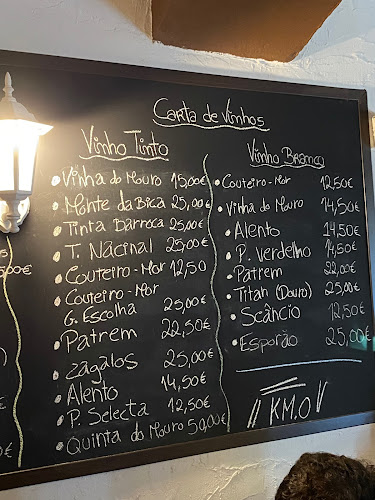 Carta de Vinhos
Vinho Tinto
• Vinha do Mouro 15,00€
• Monte da Bica 25,00€
• Tinta Barroca 25,00€
• T. Nacinal 25,00€
• Couteiro-Mor 12,50
• Couteiro-Mor
G. Escolha 25,00€
• Patrem 22,50€
• Zagalos 25,00€
• Alento 14,50€
• P. Selecta 12,50€
• Quinta do Mouro 50,00€
Vinho Branco
• Couteiro-Mor 12,50€
• Vinha do Mouro 14,50€
• Alento 14,50€
• P. Verdelho 14,50€
• Patrem 22,00€
• Titan (Douro) 25,00€
• Scâncio 12,50€
• Esporão 25,00€
// KM.0 //